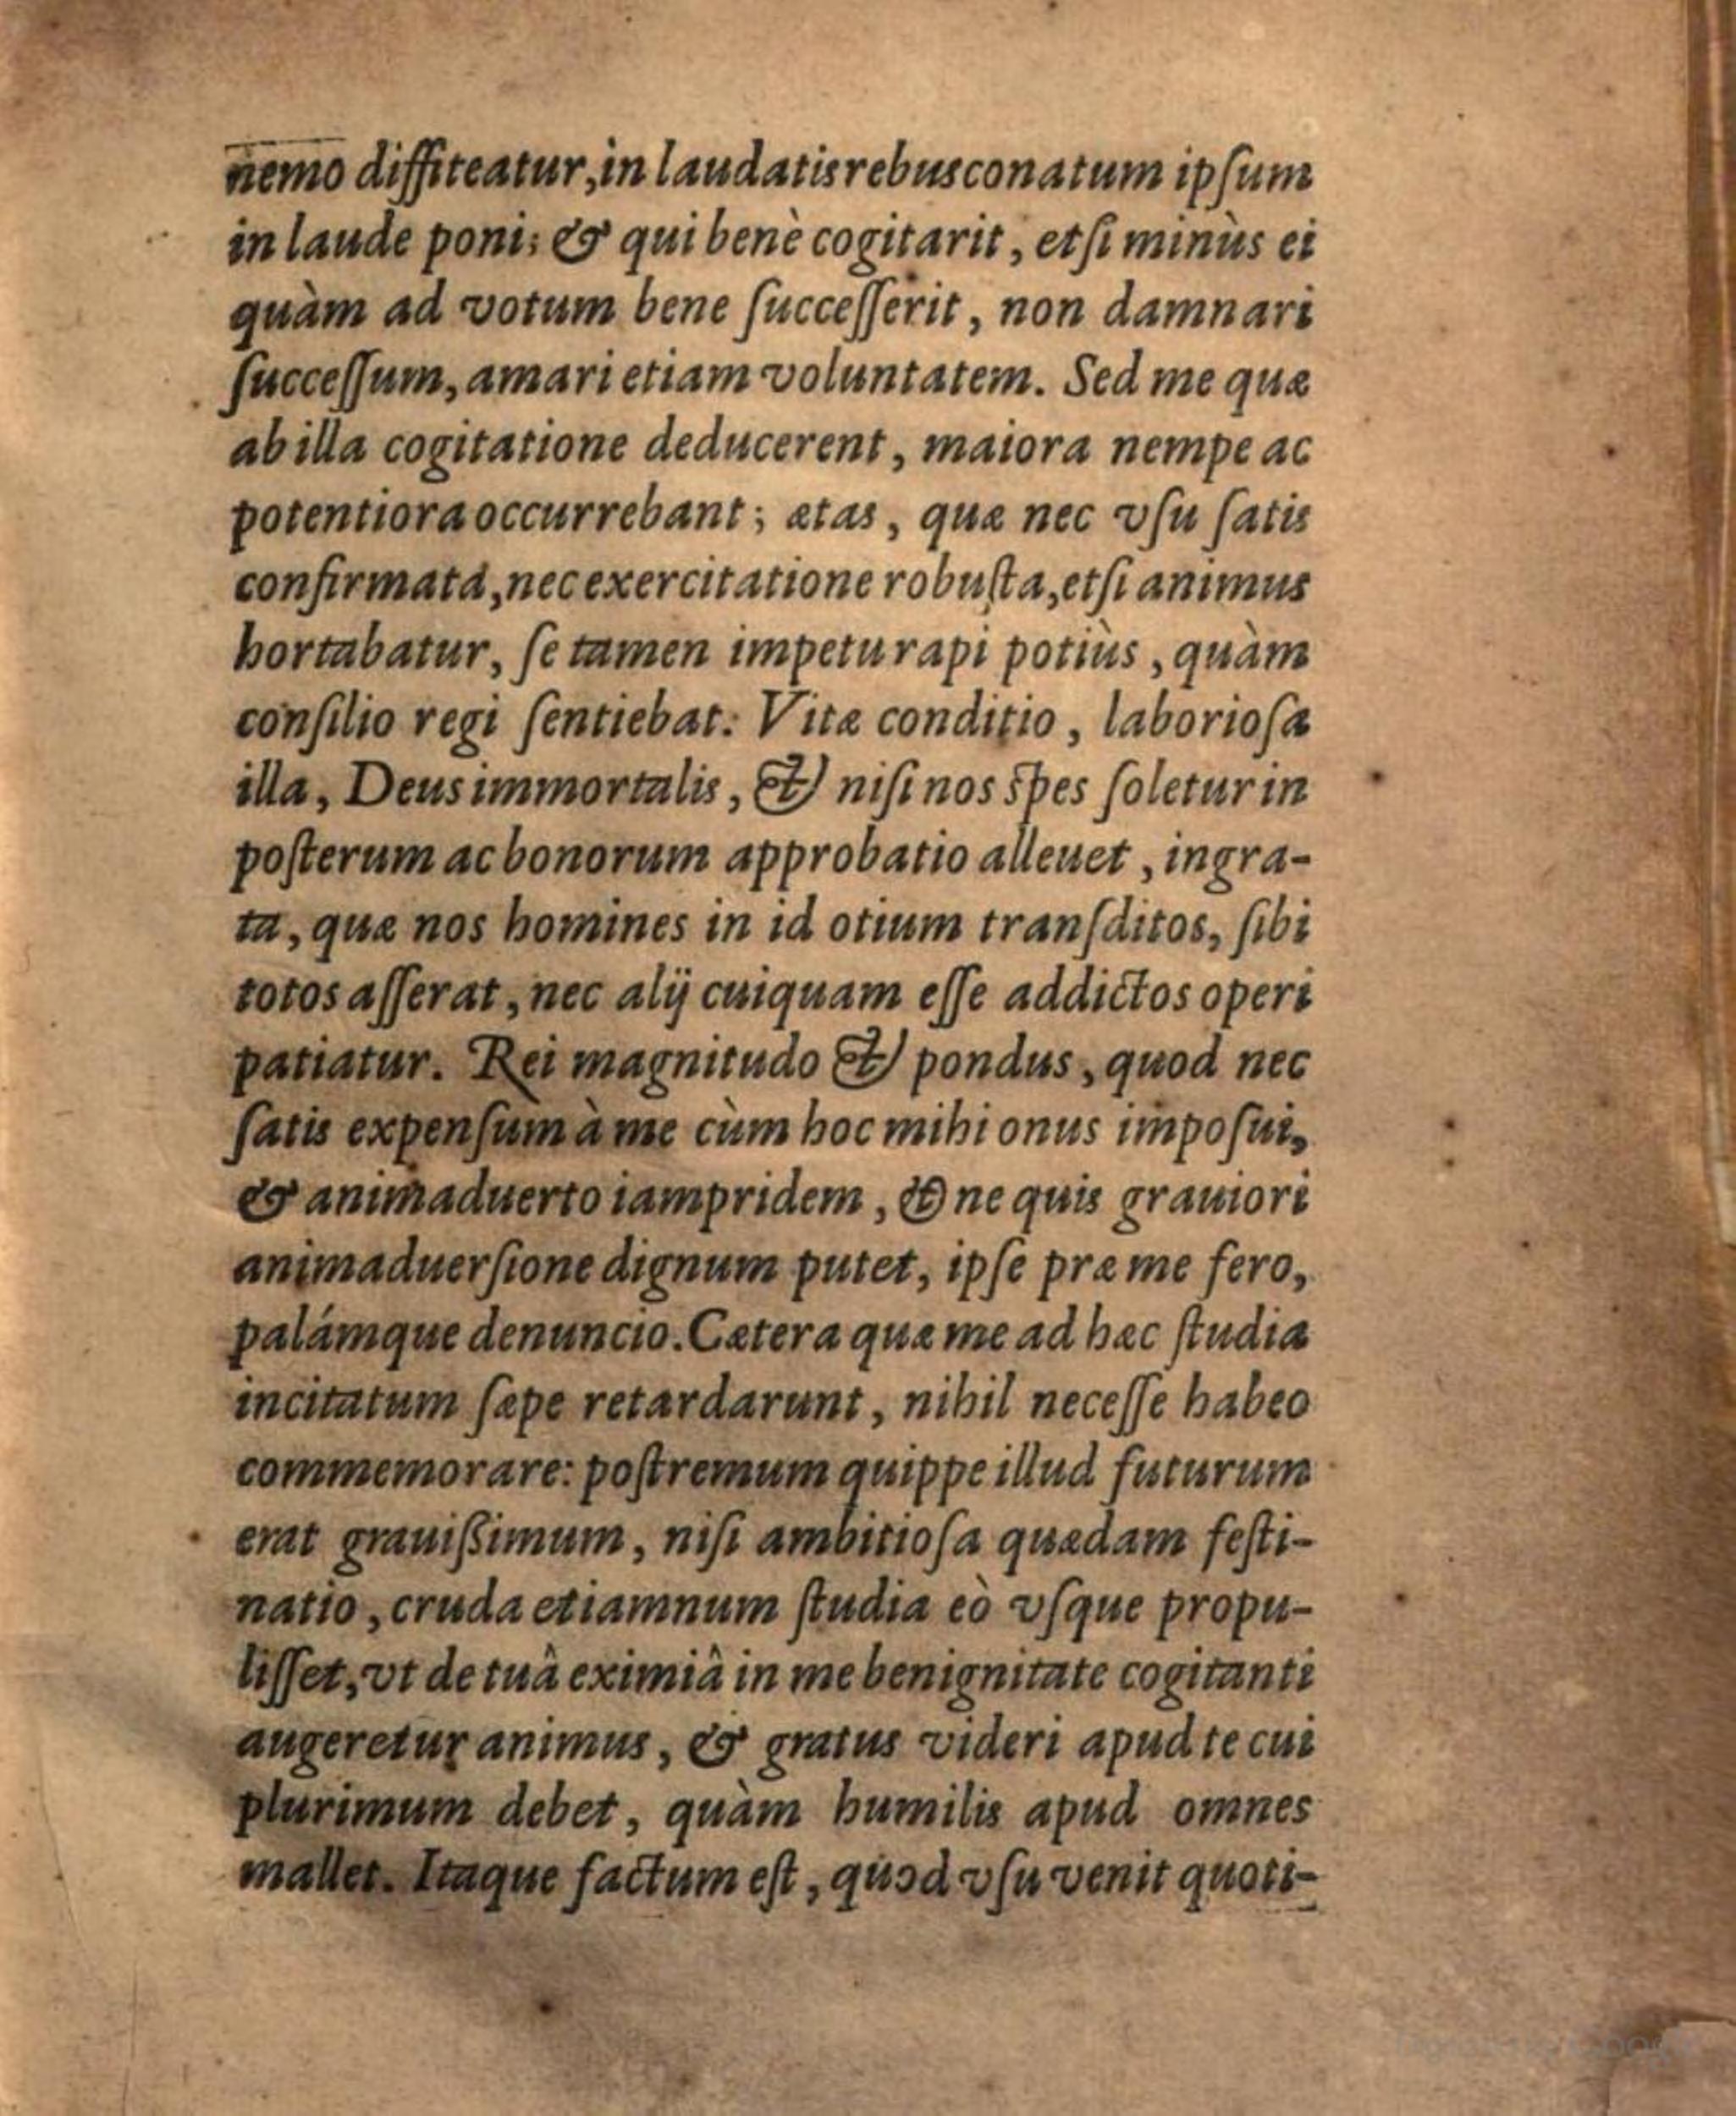 nemo diffiteatur, in laudatis rebus conatum ipſum
in laude poni; & qui benè cogitarit, etſi minùs ei
quàm ad votum bene ſucceſſerit, non damnari
ſucceſſum, amari etiam voluntatem. Sed me quæ
ab illa cogitatione deducerent, maiora nempe ac
potentiora occurrebant; ætas, quæ nec vſu ſatis
confirmata, nec exercitatione robuſta, etſi animus
hortabatur, ſe tamen impetu rapi potiùs, quàm
conſilio regi ſentiebat: Vitæ conditio, laborioſa
illa, Deus immortalis, & niſi nos ſpes ſoletur in
poſterum ac bonorum approbatio alleuet, ingra-
ta, quæ nos homines in id otium tranſditos, ſibi
totos aſſerat, nec alij cuiquam eſſe addictos operi
patiatur. Rei magnitudo & pondus, quod nec
ſatis expenſum à me cùm hoc mihi onus impoſui,
& animaduerto iampridem, & ne quis grauiori
animaduerſione dignum putet, ipſe præ me fero,
palámque denuncio. Cætera quæ me ad hæc ſtudia
incitatum ſæpe retardarunt, nihil neceſſe habeo
commemorare: poſtremum quippe illud futurum
erat grauißimum, niſi ambitioſa quædam feſti-
natio, cruda etiamnum ſtudia eò vſque propu-
liſſet, vt de tuâ eximiâ in me benignitate cogitanti
augeretur animus, & gratus videri apud te cui
plurimum debet, quàm humilis apud omnes
mallet. Itaque factum eſt, quod vſu venit quoti-